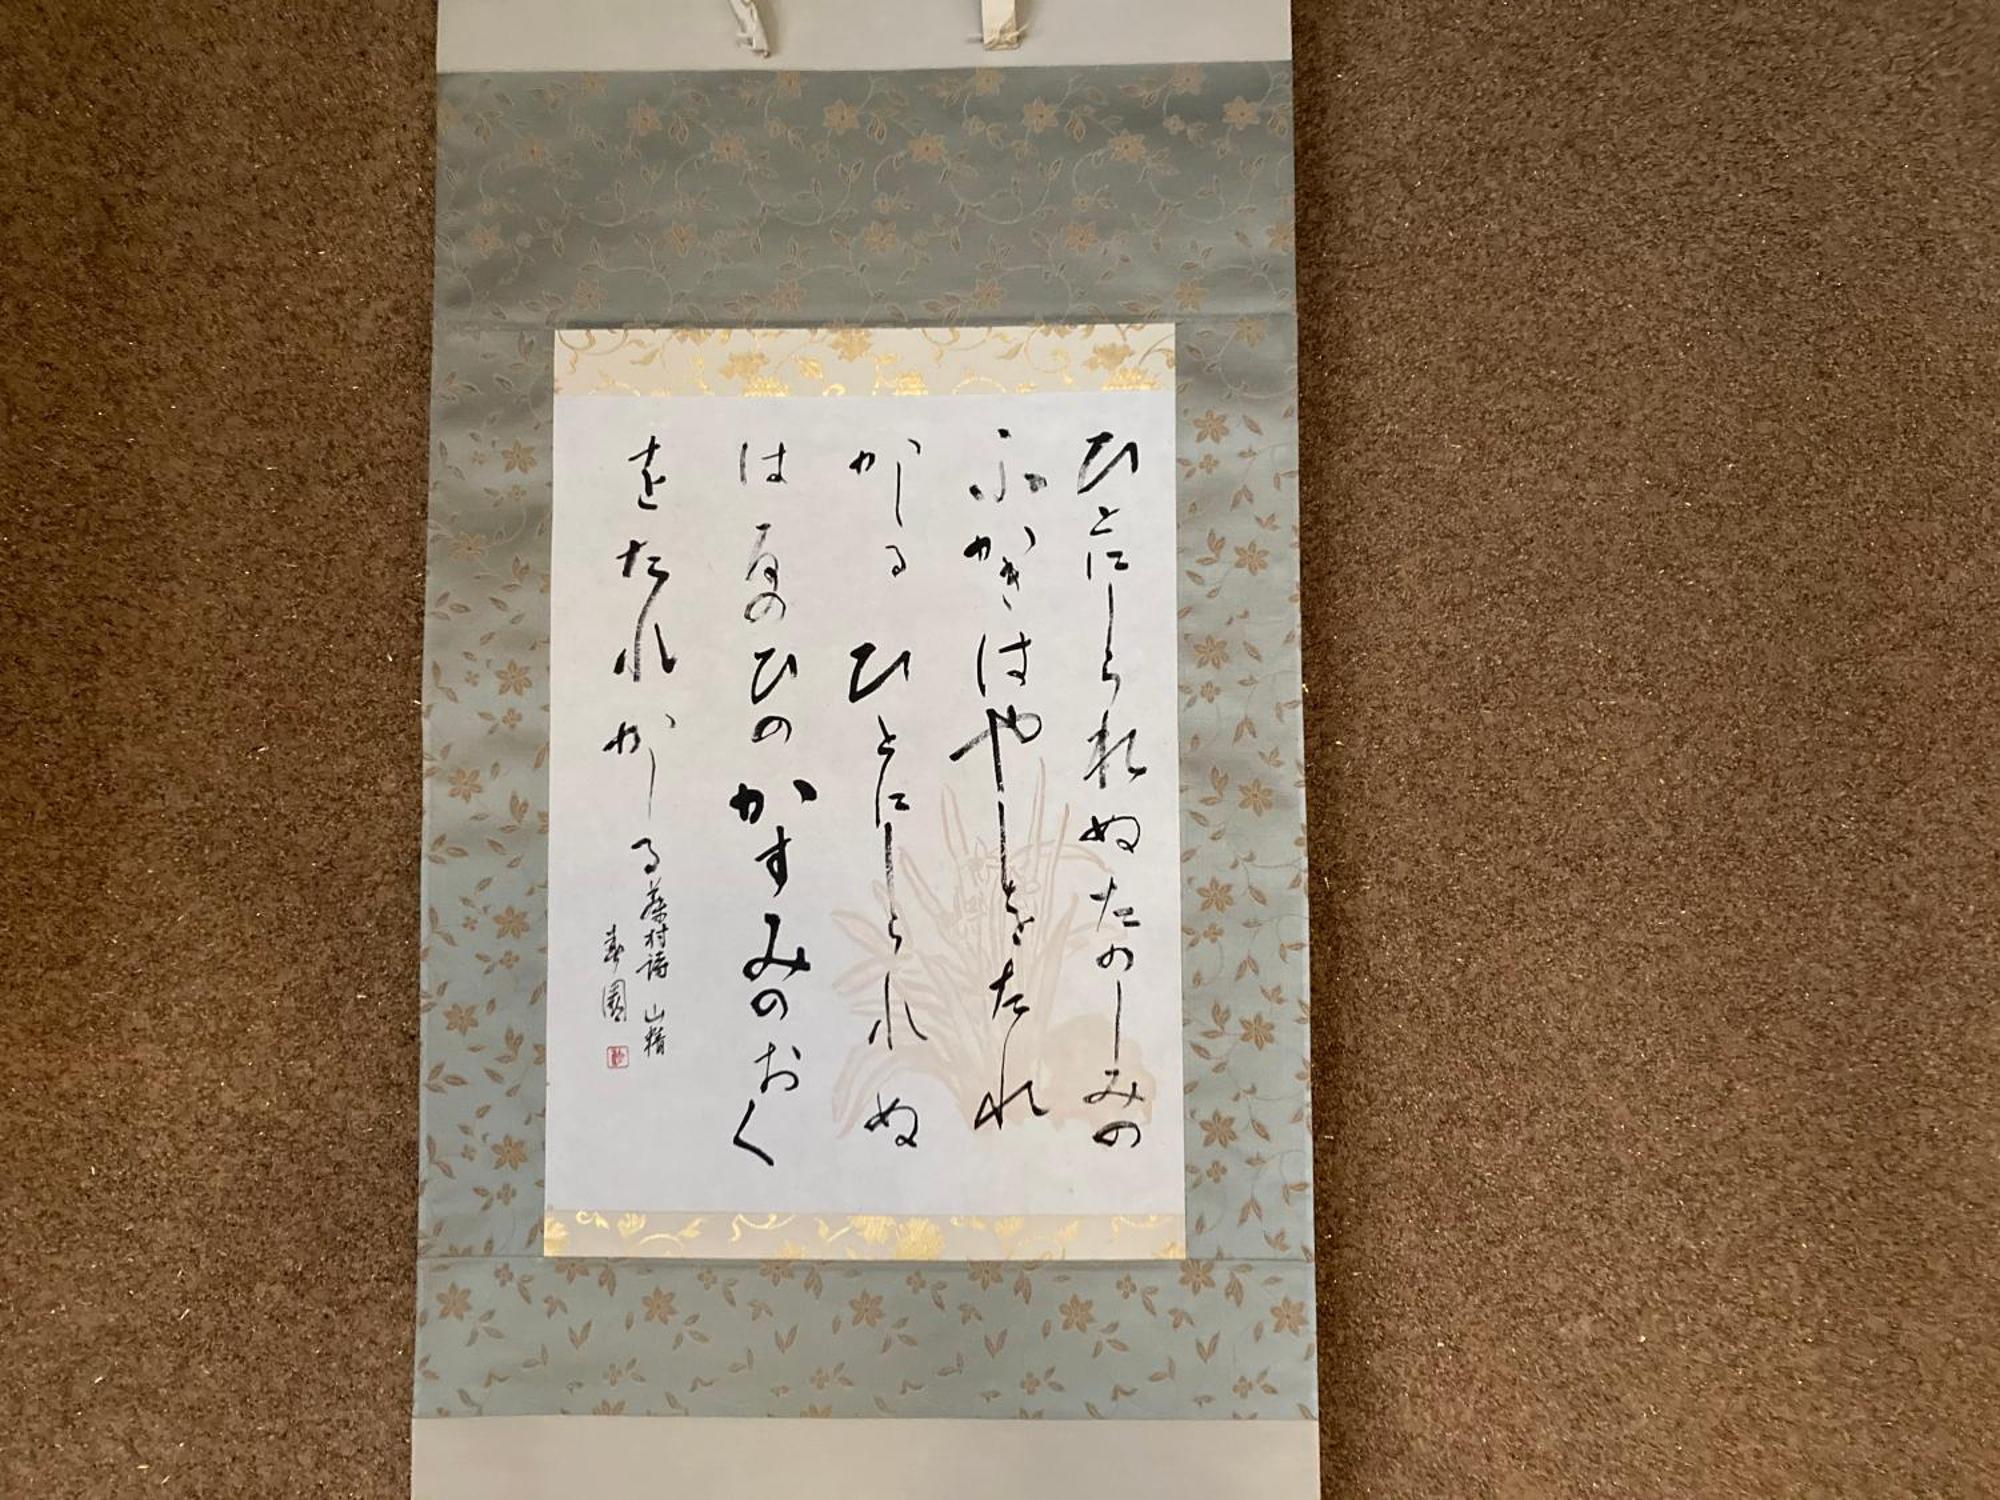 ひとにしられぬたのしみの
ふかきはやしをたれ
かしる ひとにしられぬ
はるのひのかすみのおく
をたれかしる
藤村詩 山精
春園